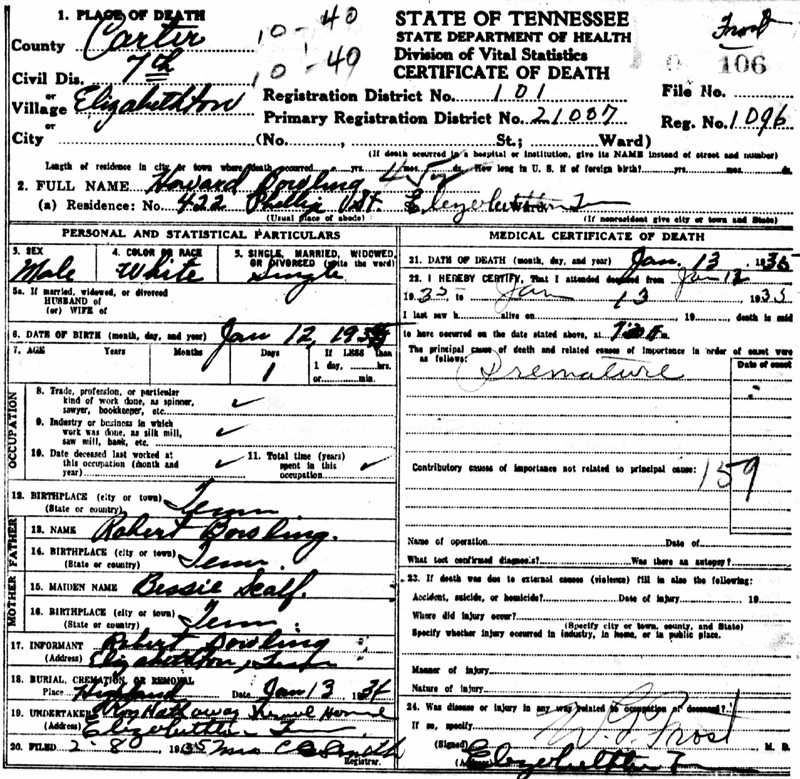 1. PLACE OF DEATH
County Carter 10-40
Civil Dis. 7th 10-40
or
Village Elizabethton
or
City (No. , St.; Ward)
STATE OF TENNESSEE
STATE DEPARTMENT OF HEALTH
Division of Vital Statistics
CERTIFICATE OF DEATH
Registration District No. 101
Primary Registration District No. 21087
Frost
106
File No.
Reg. No. 1096
(If death occurred in a hospital or institution, give its NAME instead of street and number)
Length of residence in city or town where death occurred yrs. mos. ds. How long in U. S. if of foreign birth? yrs. mos. ds.
2. FULL NAME Howard Bowling
(a) Residence: No. 422 Phillip St. Elizabethton Tenn
(Usual place of abode) (If nonresident give city or town and State)
PERSONAL AND STATISTICAL PARTICULARS
3. SEX
Male
4. COLOR OR RACE
White
5. SINGLE, MARRIED, WIDOWED, OR DIVORCED (write the word)
Single
5a. If married, widowed, or divorced
HUSBAND of
(or) WIFE of
6. DATE OF BIRTH (month, day, and year) Jan 12, 193
7. AGE Years Months Days If LESS than
1 1 day, hrs.
or min.
OCCUPATION
8. Trade, profession, or particular
kind of work done, as spinner,
sawyer, bookkeeper, etc. ✓
9. Industry or business in which
work was done, as silk mill,
saw mill, bank, etc. ✓
10. Date deceased last worked at
this occupation (month and
year) ✓
11. Total time (years)
spent in this
occupation ✓
12. BIRTHPLACE (city or town)
(State or country) Tenn
FATHER
13. NAME Robert Bowling.
14. BIRTHPLACE (city or town)
(State or country) Tenn.
MOTHER
15. MAIDEN NAME Bessie Scalf.
16. BIRTHPLACE (city or town)
(State or country) Tenn.
17. INFORMANT Robert Bowling
(Address) Elizabethton, Tenn
18. BURIAL, CREMATION, OR REMOVAL
Place Highland Date Jan 13 1934
19. UNDERTAKER Roy Hathaway Funeral Home
Elizabethton Tenn
20. FILED 2-8 1935 Mrs C Smith
Registrar.
MEDICAL CERTIFICATE OF DEATH
21. DATE OF DEATH (month, day, and year) Jan. 13 1935
22. I HEREBY CERTIFY, That I attended deceased from Jan 12
1935 to Jan 13 1935
I last saw h alive on 19 , death is said
to have occurred on the date stated above, at m.
The principal cause of death and related causes of importance in order of onset were
as follows: Date of onset
Premature
Contributory causes of importance not related to principal cause: 159
Name of operation Date of
What test confirmed diagnosis? Was there an autopsy?
23. If death was due to external causes (violence) fill in also the following:
Accident, suicide, or homicide? Date of injury 19
Where did injury occur?
(Specify city or town, county, and State)
Specify whether injury occurred in industry, in home, or in public place.
Manner of injury
Nature of injury
24. Was disease or injury in any way related to occupation of deceased?
If so, specify
(Signed) W. G. Frost M. D.
(Address) Elizabethton Tn